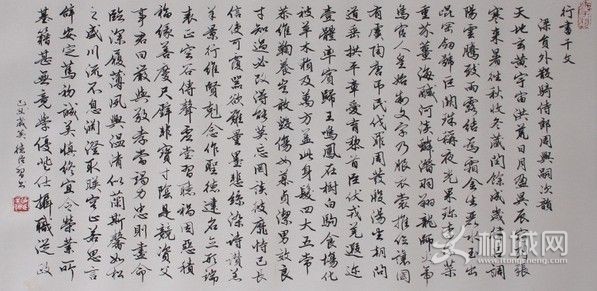 行書千文
梁員外散騎侍郎周興嗣次韻
天地玄黃宇宙洪荒日月盈昃辰宿列張
寒来暑往秋收冬藏閏餘成歲律呂調
陽雲騰致雨露結爲霜金生麗水玉出
崑岡劍號巨闕珠稱夜光果珍李柰菜
重芥薑海鹹河淡鱗潛羽翔龍師火帝
鳥官人皇始制文字乃服衣裳推位讓國
有虞陶唐弔民伐罪周發殷湯坐朝問
道垂拱平章愛育黎首臣伏戎羌遐邇
壹體率賓歸王鳴鳳在樹白駒食場化
被草木賴及萬方蓋此身髮四大五常
恭惟鞠養豈敢毀傷女慕貞潔男效良
才知過必改得能莫忘罔談彼短靡恃己長
信使可覆器欲難量墨悲絲染詩讚羔
羊景行維賢剋念作聖德建名立形端
表正空谷傳聲虛堂習聽禍因惡積
福緣善慶尺璧非寶寸陰是競資父
事君曰嚴與敬孝當竭力忠則盡命
臨深履薄夙興溫凊似蘭斯馨如松
之盛川流不息淵澄取映容止若思言
辭安定篤初誠美慎終宜令榮業所
基籍甚無竟學優登仕攝職從政
己丑歲
桐城网
itongcheng.com